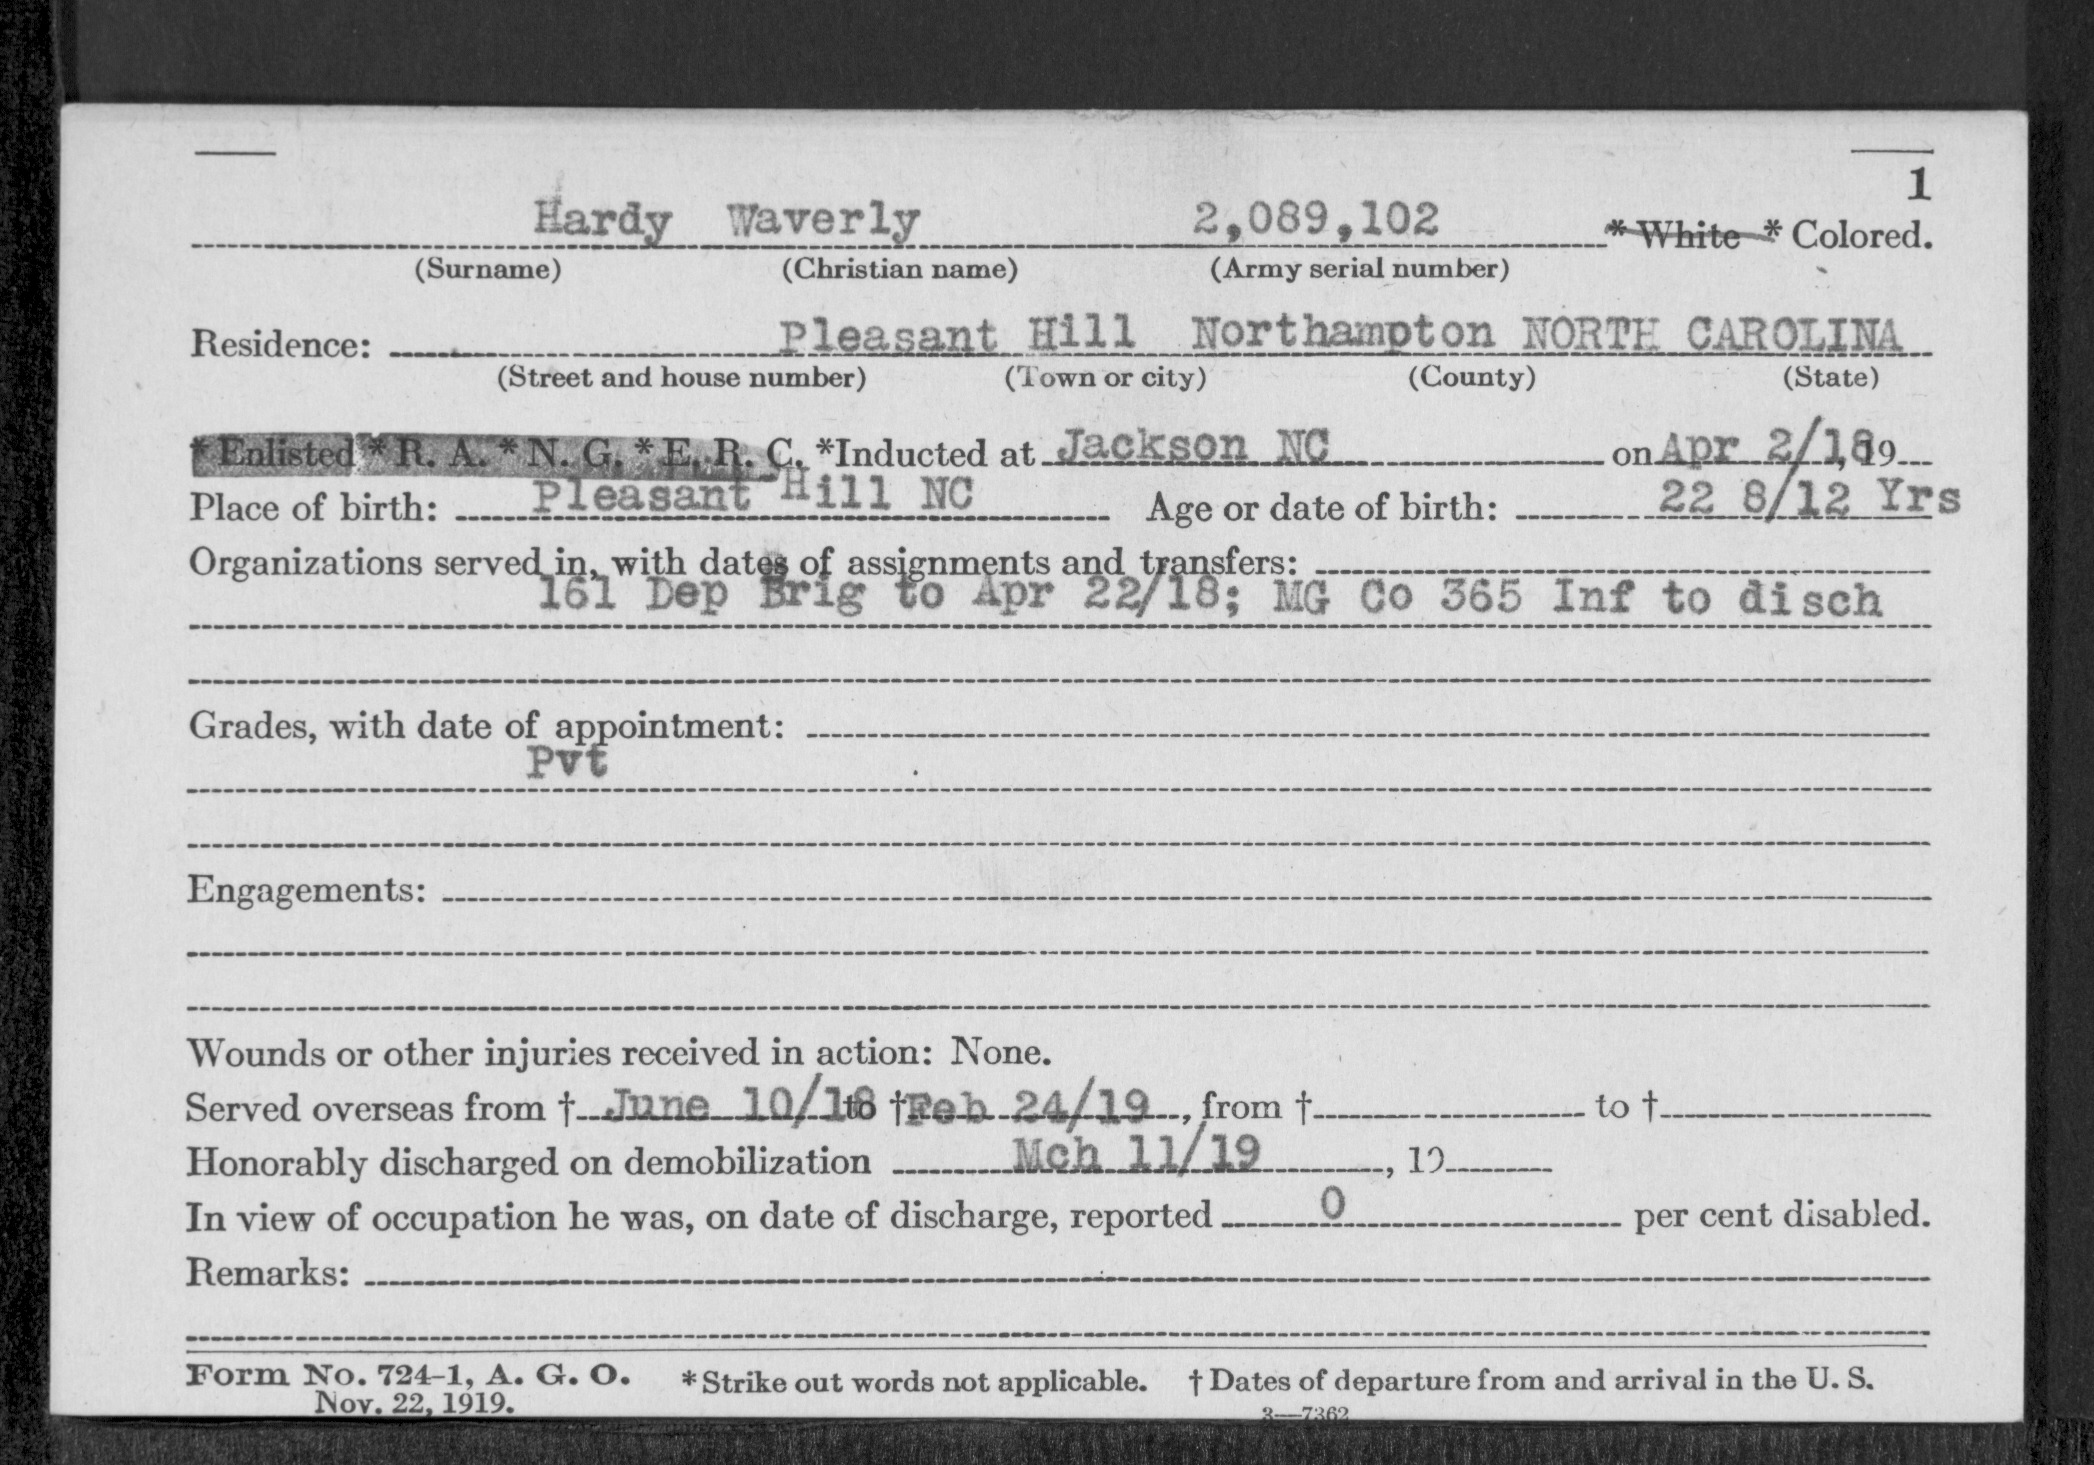 1
Hardy Waverly 2,089,102 * White * Colored.
(Surname) (Christian name) (Army serial number)
Residence: Pleasant Hill Northampton NORTH CAROLINA
(Street and house number) (Town or city) (County) (State)
* Enlisted * R. A. * N. G. * E. R. C. *Inducted at Jackson NC on Apr 2/18, 19
Place of birth: Pleasant Hill NC Age or date of birth: 22 8/12 Yrs
Organizations served in, with dates of assignments and transfers:
161 Dep Brig to Apr 22/18; MG Co 365 Inf to disch
Grades, with date of appointment:
Pvt
Engagements:
Wounds or other injuries received in action: None.
Served overseas from † June 10/18 to † Feb 24/19, from † to †
Honorably discharged on demobilization Mch 11/19, 19
In view of occupation he was, on date of discharge, reported 0 per cent disabled.
Remarks:
Form No. 724-1, A. G. O. * Strike out words not applicable. † Dates of departure from and arrival in the U. S.
Nov. 22, 1919. 3—7362